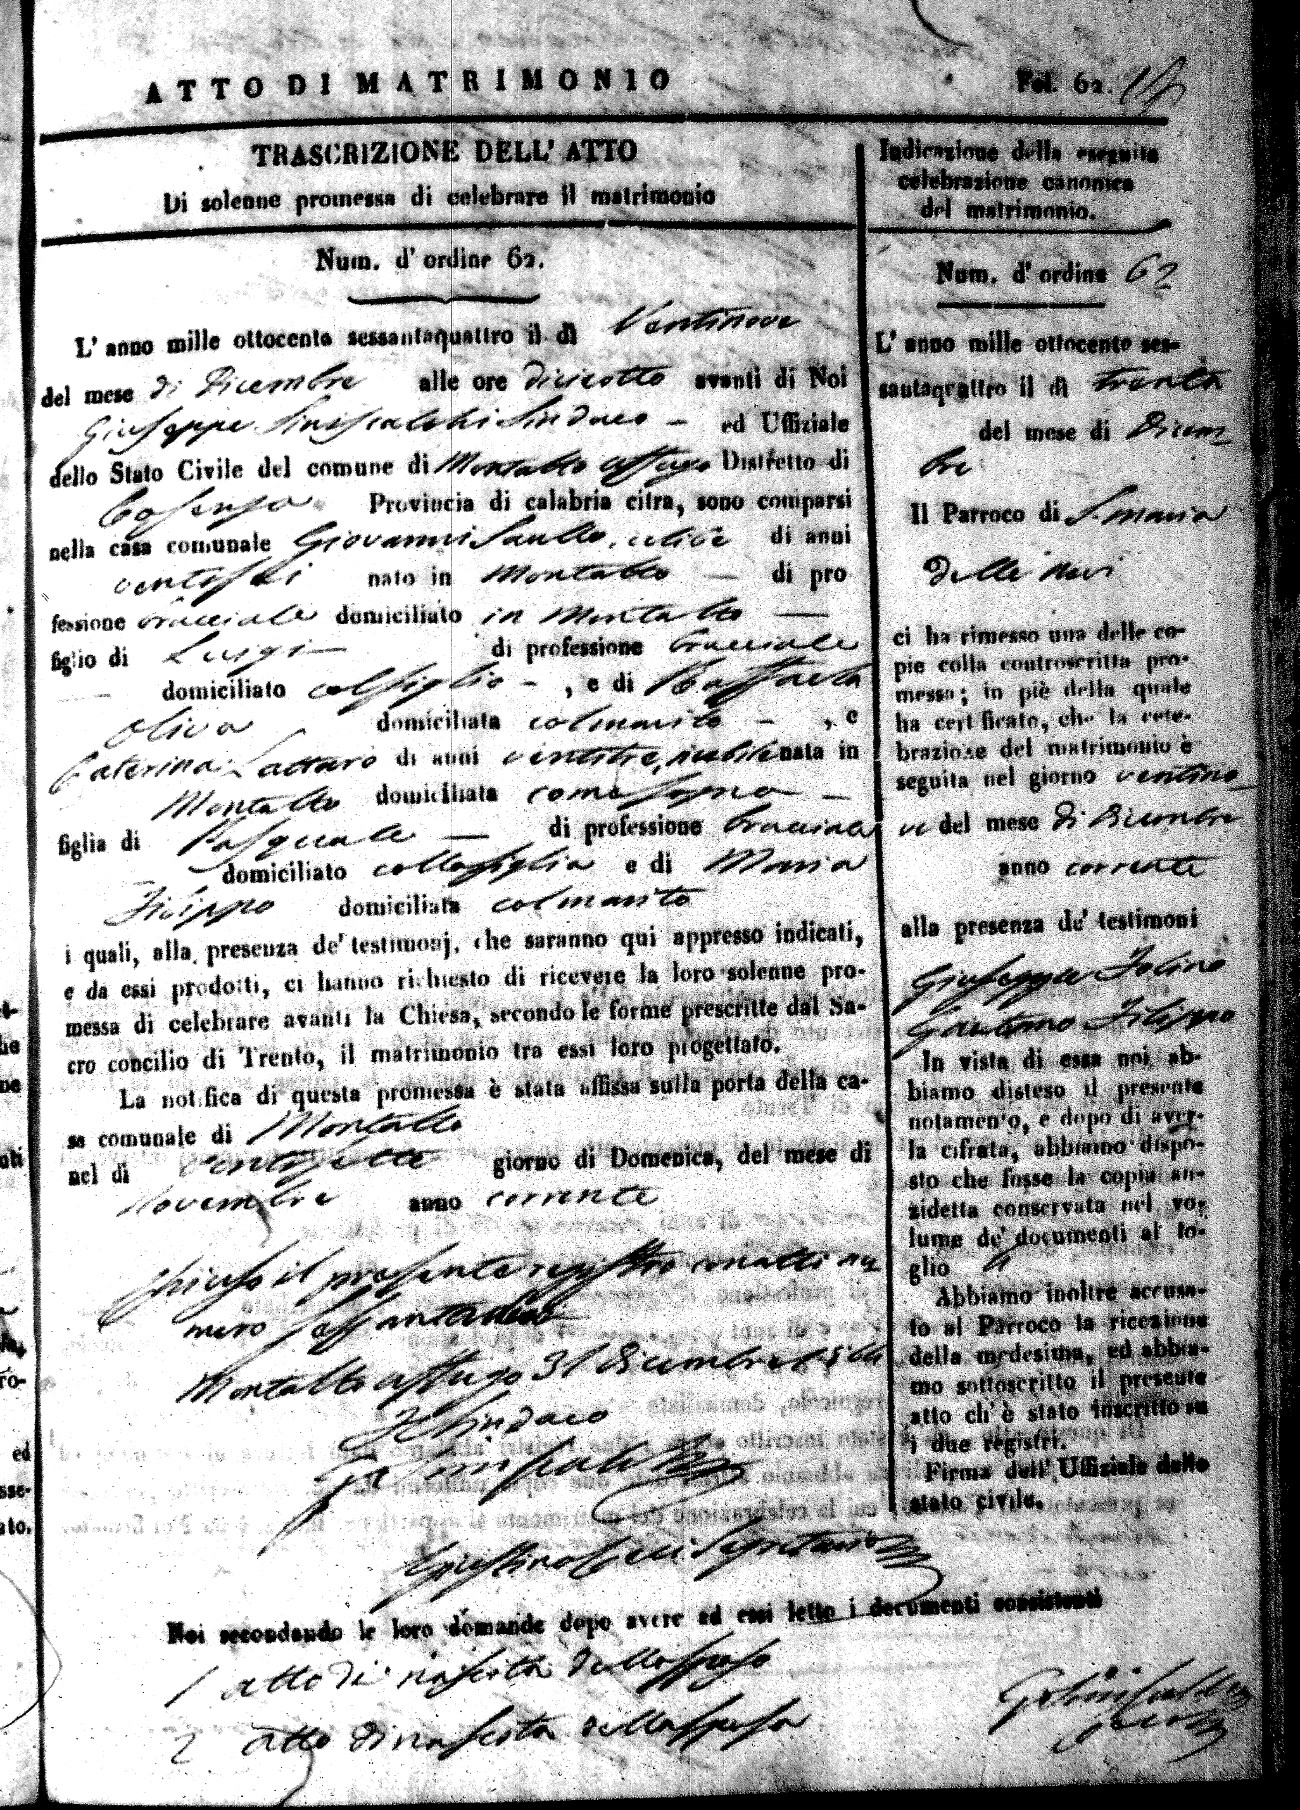 ATTO DI MATRIMONIO
Fol. 62.
TRASCRIZIONE DELL' ATTO
Di solenne promessa di celebrare il matrimonio
Num. d' ordine 62.
L' anno mille ottocento sessantaquattro il dì Ventinove
del mese di Dicembre alle ore diciotto avanti di Noi
Giuseppe Siniscalchi Sindaco - ed Uffiziale
dello Stato Civile del comune di Montalto uffugo Distretto di
Cosenza Provincia di calabria citra, sono comparsi
nella casa comunale Giovanni Saullo, celibe di anni
ventisei nato in Montalto - di pro
fessione bracciale domiciliato in Montalto -
figlio di Luigi - di professione bracciale
- domiciliato colfiglio - , e di Raffaela
Oliva domiciliata colmarito - , e
Caterina Lattaro di anni ventitre, nubile nata in
Montalto domiciliata come sopra -
figlia di Pasquale - di professione bracciale
domiciliato collafiglia e di Maria
Filippo domiciliata colmarito
i quali, alla presenza de' testimonj, che saranno qui appresso indicati,
e da essi prodotti, ci hanno richiesto di ricevere la loro solenne pro-
messa di celebrare avanti la Chiesa, secondo le forme prescritte dal Sa-
cro concilio di Trento, il matrimonio tra essi loro progettato.
La notifica di questa promessa è stata affissa sulla porta della ca-
sa comunale di Montalto
nel dì ventisette giorno di Domenica, del mese di
Novembre anno corrente
Chiuso il presente registro con atti nu
mero sessantadue
Montalto uffugo 31 Dicembre 1864
Il Sindaco
G Siniscalchi
Segretario
Noi secondando le loro domande dopo avere ad essi letto i documenti consistenti
1 atto di nascita dello sposo
2 atto di nascita della sposa
Indicazione della eseguita
celebrazione canonica
del matrimonio.
Num. d' ordine 62
L' anno mille ottocento ses-
santaquattro il dì trenta
del mese di Dicem
bre
Il Parroco di S. Maria
della Nevi
ci ha rimesso una delle co-
pie colla controscritta pro-
messa; in piè della quale
ha certificato, che la cele-
brazione del matrimonio è
seguita nel giorno ventino
ve del mese di Dicembre
anno corrente
alla presenza de' testimoni
Giuseppe Folino
Gaetano Filippo
In vista di essa noi ab-
biamo disteso il presente
notamento, e dopo di aver-
la cifrata, abbiamo dispo-
sto che fosse la copia an-
zidetta conservata nel vo-
lume de' documenti al fo-
glio
Abbiamo inoltre accusa-
to al Parroco la ricezione
della medesima, ed abbia-
mo sottoscritto il presente
atto ch' è stato inscritto su
i due registri.
Firma dell' Uffiziale dello
stato civile.
G Siniscalchi